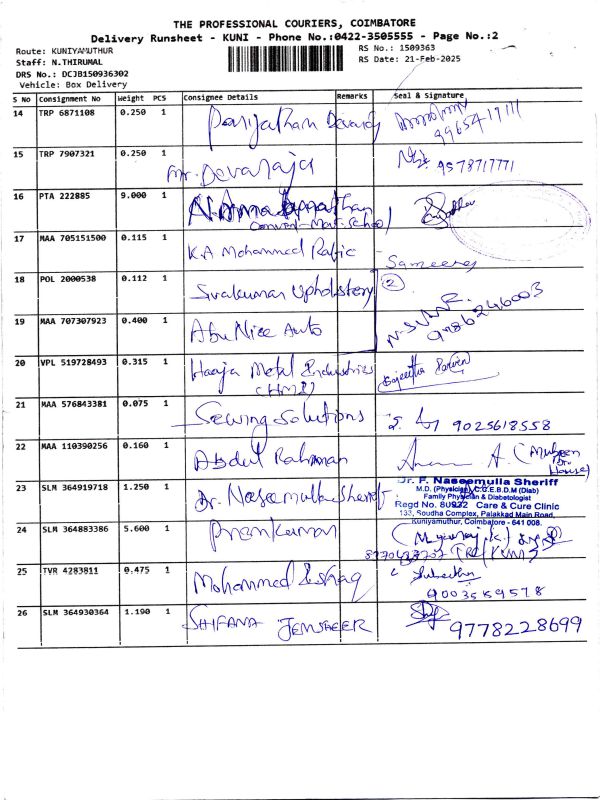 THE PROFESSIONAL COURIERS, COIMBATORE
Delivery Runsheet - KUNI - Phone No.:0422-3505555 - Page No.:2
Route: KUNIYAMUTHUR
RS No.: 1509363
Staff: N.THIRUMAL
RS Date: 21-Feb-2025
DRS No.: DCJB150936302
Vehicle: Box Delivery
S No Consignment No Weight PCS Consignee Details Remarks Seal & Signature
14 TRP 6871108 0.250 1 Parijathan
15 TRP 7907321 0.250 1 Mr. Devaraja 9578717771
16 PTA 222885 9.000 1
17 MAA 705151500 0.115 1 K.A Mohammed Rafic Sameeraj
18 POL 2000538 0.112 1 Sivakumar Upholstery 2
19 MAA 707307923 0.400 1 Abu Nice Auto 9786246003
20 VPL 519728493 0.315 1 Haaja Metal Industries
(HMI)
21 MAA 576843381 0.075 1 Sewing Solutions 9025618558
22 MAA 110390256 0.160 1 Abdul Rahman
House)
23 SLM 364919718 1.250 1 Dr. Naseemulla Sheriff
Dr. F. Naseemulla Sheriff
M.D. (Physician) C.C.E.B.D.M (Diab)
Family Physician & Diabetologist
Regd No. 80932 Care & Cure Clinic
133, Roudha Complex, Palakkad Main Road,
Kuniyamuthur, Coimbatore - 641 008.
24 SLM 364883386 5.600 1 Premkumar
25 TVR 4283811 0.475 1 Mohammed Ishaq
26 SLM 364930364 1.190 1 SHIFANA JEMSHEER 9778228699